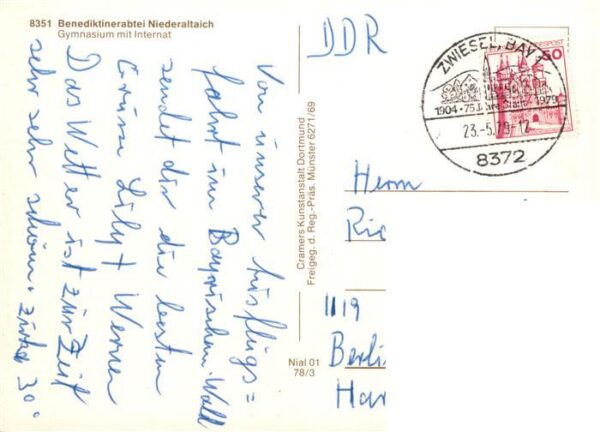 8351 Benediktinerabtei Niederaltaich
Gymnasium mit Internat
Von unserer Ausflugs=
fahrt im Bayrischen Wald
sendet dir die besten
Grüsse Lily + Werner
Das Wetter ist zur Zeit
sehr sehr schön. zirka 30°
Cramers Kunstanstalt Dortmund
Freigeg. d. Reg.-Präs. Münster 6271/69
Nial 01
78/3
DDR
50
ZWIESEL, BAY
1904 · 75 Jahre Stadt · 1979
23.-5.79-12
8372
Herrn
Ric
1119
Berli
Har